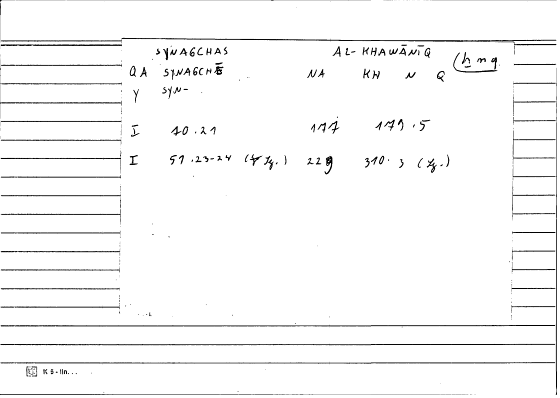 SYNAGCHAS AL-KHAWĀNĪQ (h n q
Q A SYNAGCHĒ NA KH N Q
Y SYN-
I 10.21 177 179.5
I 51.23-24 ( fg.) 229 310.3 (fg.)
K 8 - lin...